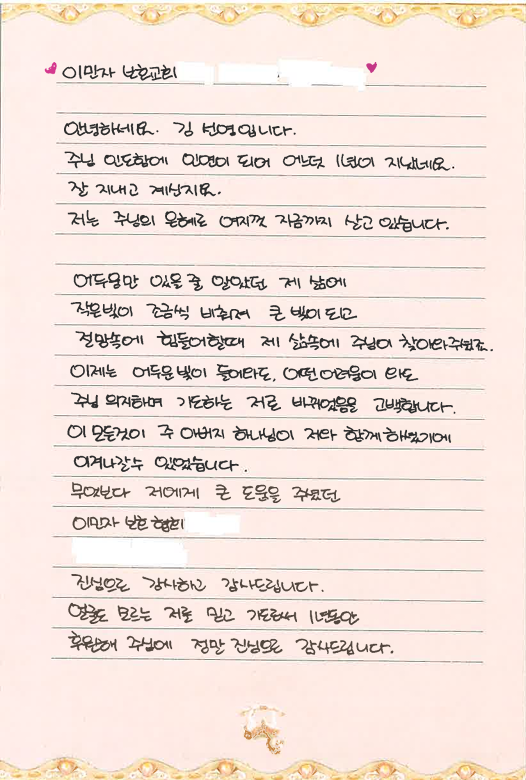 이민자 보호교회
안녕하세요. 김 선영입니다.
주님 인도함에 인연이 되어 어느덧 1년이 지났네요.
잘 지내고 계신지요.
저는 주님의 은혜로 여지껏 지금까지 살고 있습니다.
어두움만 있을 줄 알았던 제 삶에
작은빛이 조금씩 비춰져 큰 빛이 되고
절망속에 힘들어할때 제 삶속에 주님이 찾아와주셨죠.
이제는 어두운 빛이 들어와도, 어떤 어려움이 와도
주님 의지하며 기도하는 저로 바뀌었음을 고백합니다.
이 모든것이 주 아버지 하나님이 저와 함께 하셨기에
이겨나갈수 있었습니다.
무엇보다 저에게 큰 도움을 주셨던
이민자 보호 협회
진심으로 감사하고 감사드립니다.
얼굴도 모르는 저를 믿고 기도로써 1년동안
후원해 주님에 정말 진심으로 감사드립니다.